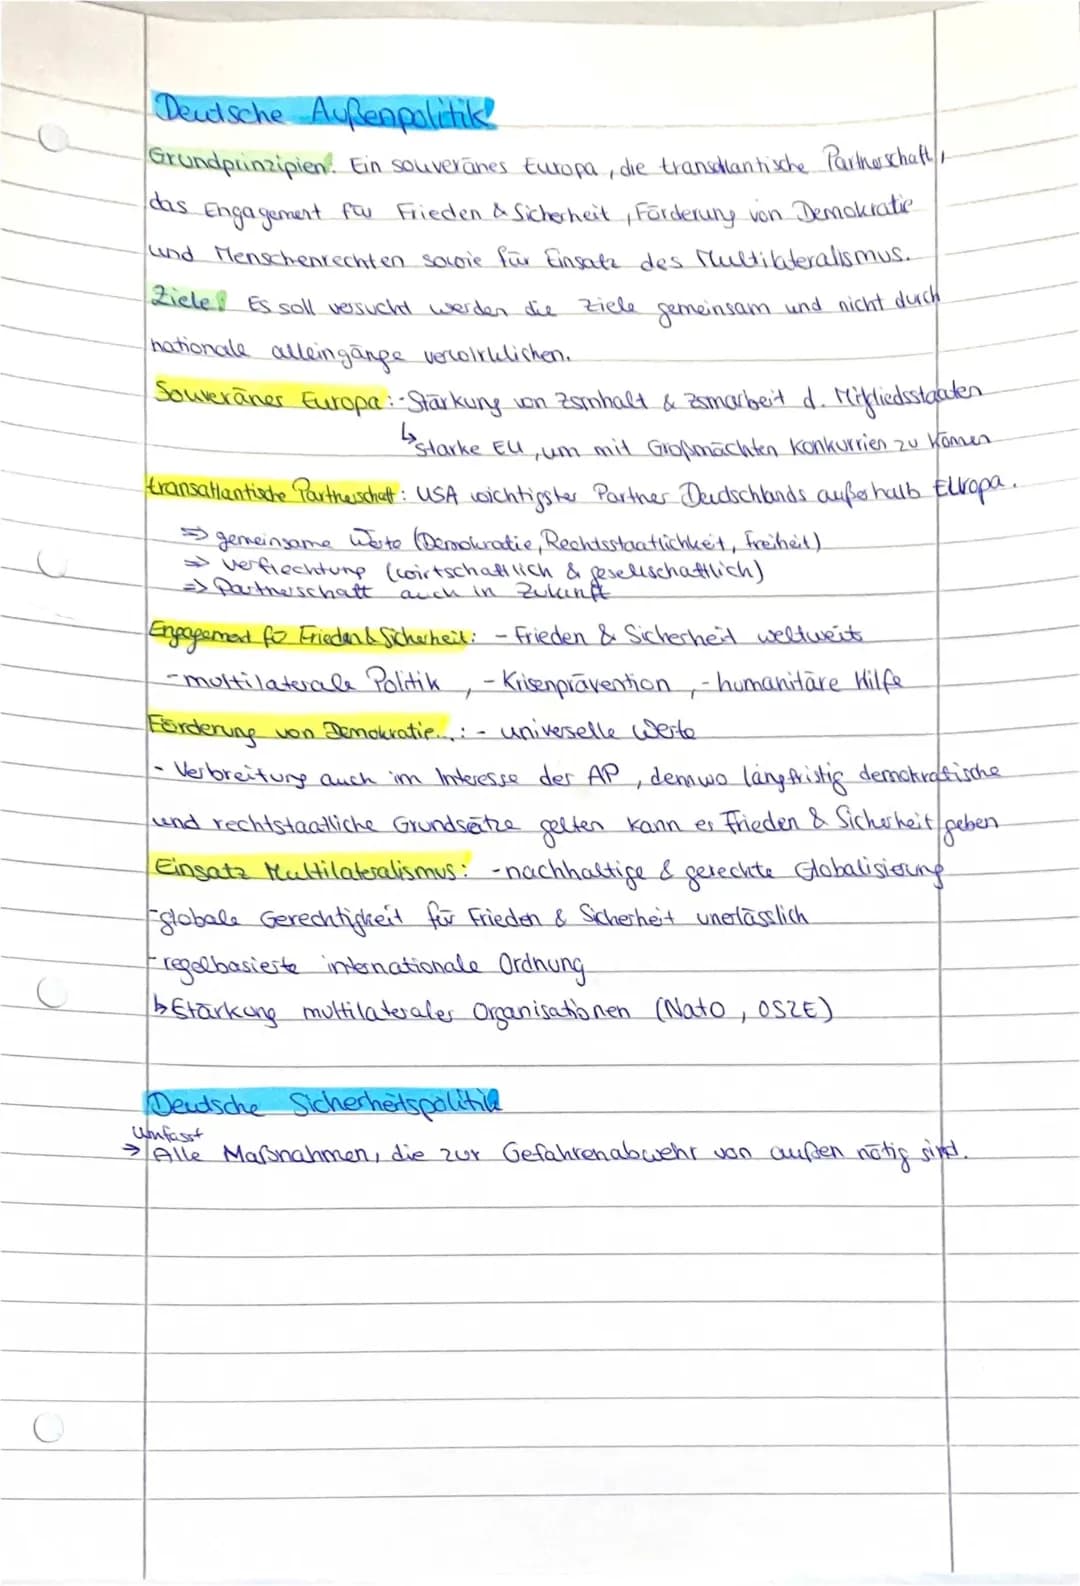 Deutsche Außenpolitik!
Grundprinzipien: Ein souveränes Europa, die transatlantische Partnerschaft,
das Engagement für Frieden & Sicherheit, Förderung von Demokratie
und Menschenrechten sowie für Einsatz des Multilateralismus.
Ziele: Es soll versucht werden die Ziele gemeinsam und nicht durch
nationale alleingänge verwirklichen.
Souveränes Europa: - Stärkung von Zsmhalt & Zsmarbeit d. Mitgliedsstaaten
↳ starke EU, um mit Großmächten konkurrien zu können
transatlantische Partnerschaft: USA wichtigster Partner Deutschlands außerhalb Europa.
=> gemeinsame Werte (Demokratie, Rechtsstaatlichkeit, Freiheit)
=> Verflechtung (wirtschaftlich & gesellschaftlich)
=> Partnerschaft auch in Zukunft
Engagement für Frieden & Sicherheit: - Frieden & Sicherheit weltweit
- multilaterale Politik, - Krisenprävention, - humanitäre Hilfe
Förderung von Demokratie...: - universelle Werte
- Verbreitung auch im Interesse der AP, denn wo längfristig demokratische
und rechtstaatliche Grundsätze gelten kann es Frieden & Sicherheit geben
Einsatz Multilateralismus: - nachhaltige & gerechte Globalisierung
- globale Gerechtigkeit für Frieden & Sicherheit unerlässlich
- regelbasierte internationale Ordnung
↳ Stärkung multilateraler Organisationen (Nato, OSZE)
Deutsche Sicherheitspolitik
Umfasst
→ Alle Maßnahmen, die zur Gefahrenabwehr von außen nötig sind.